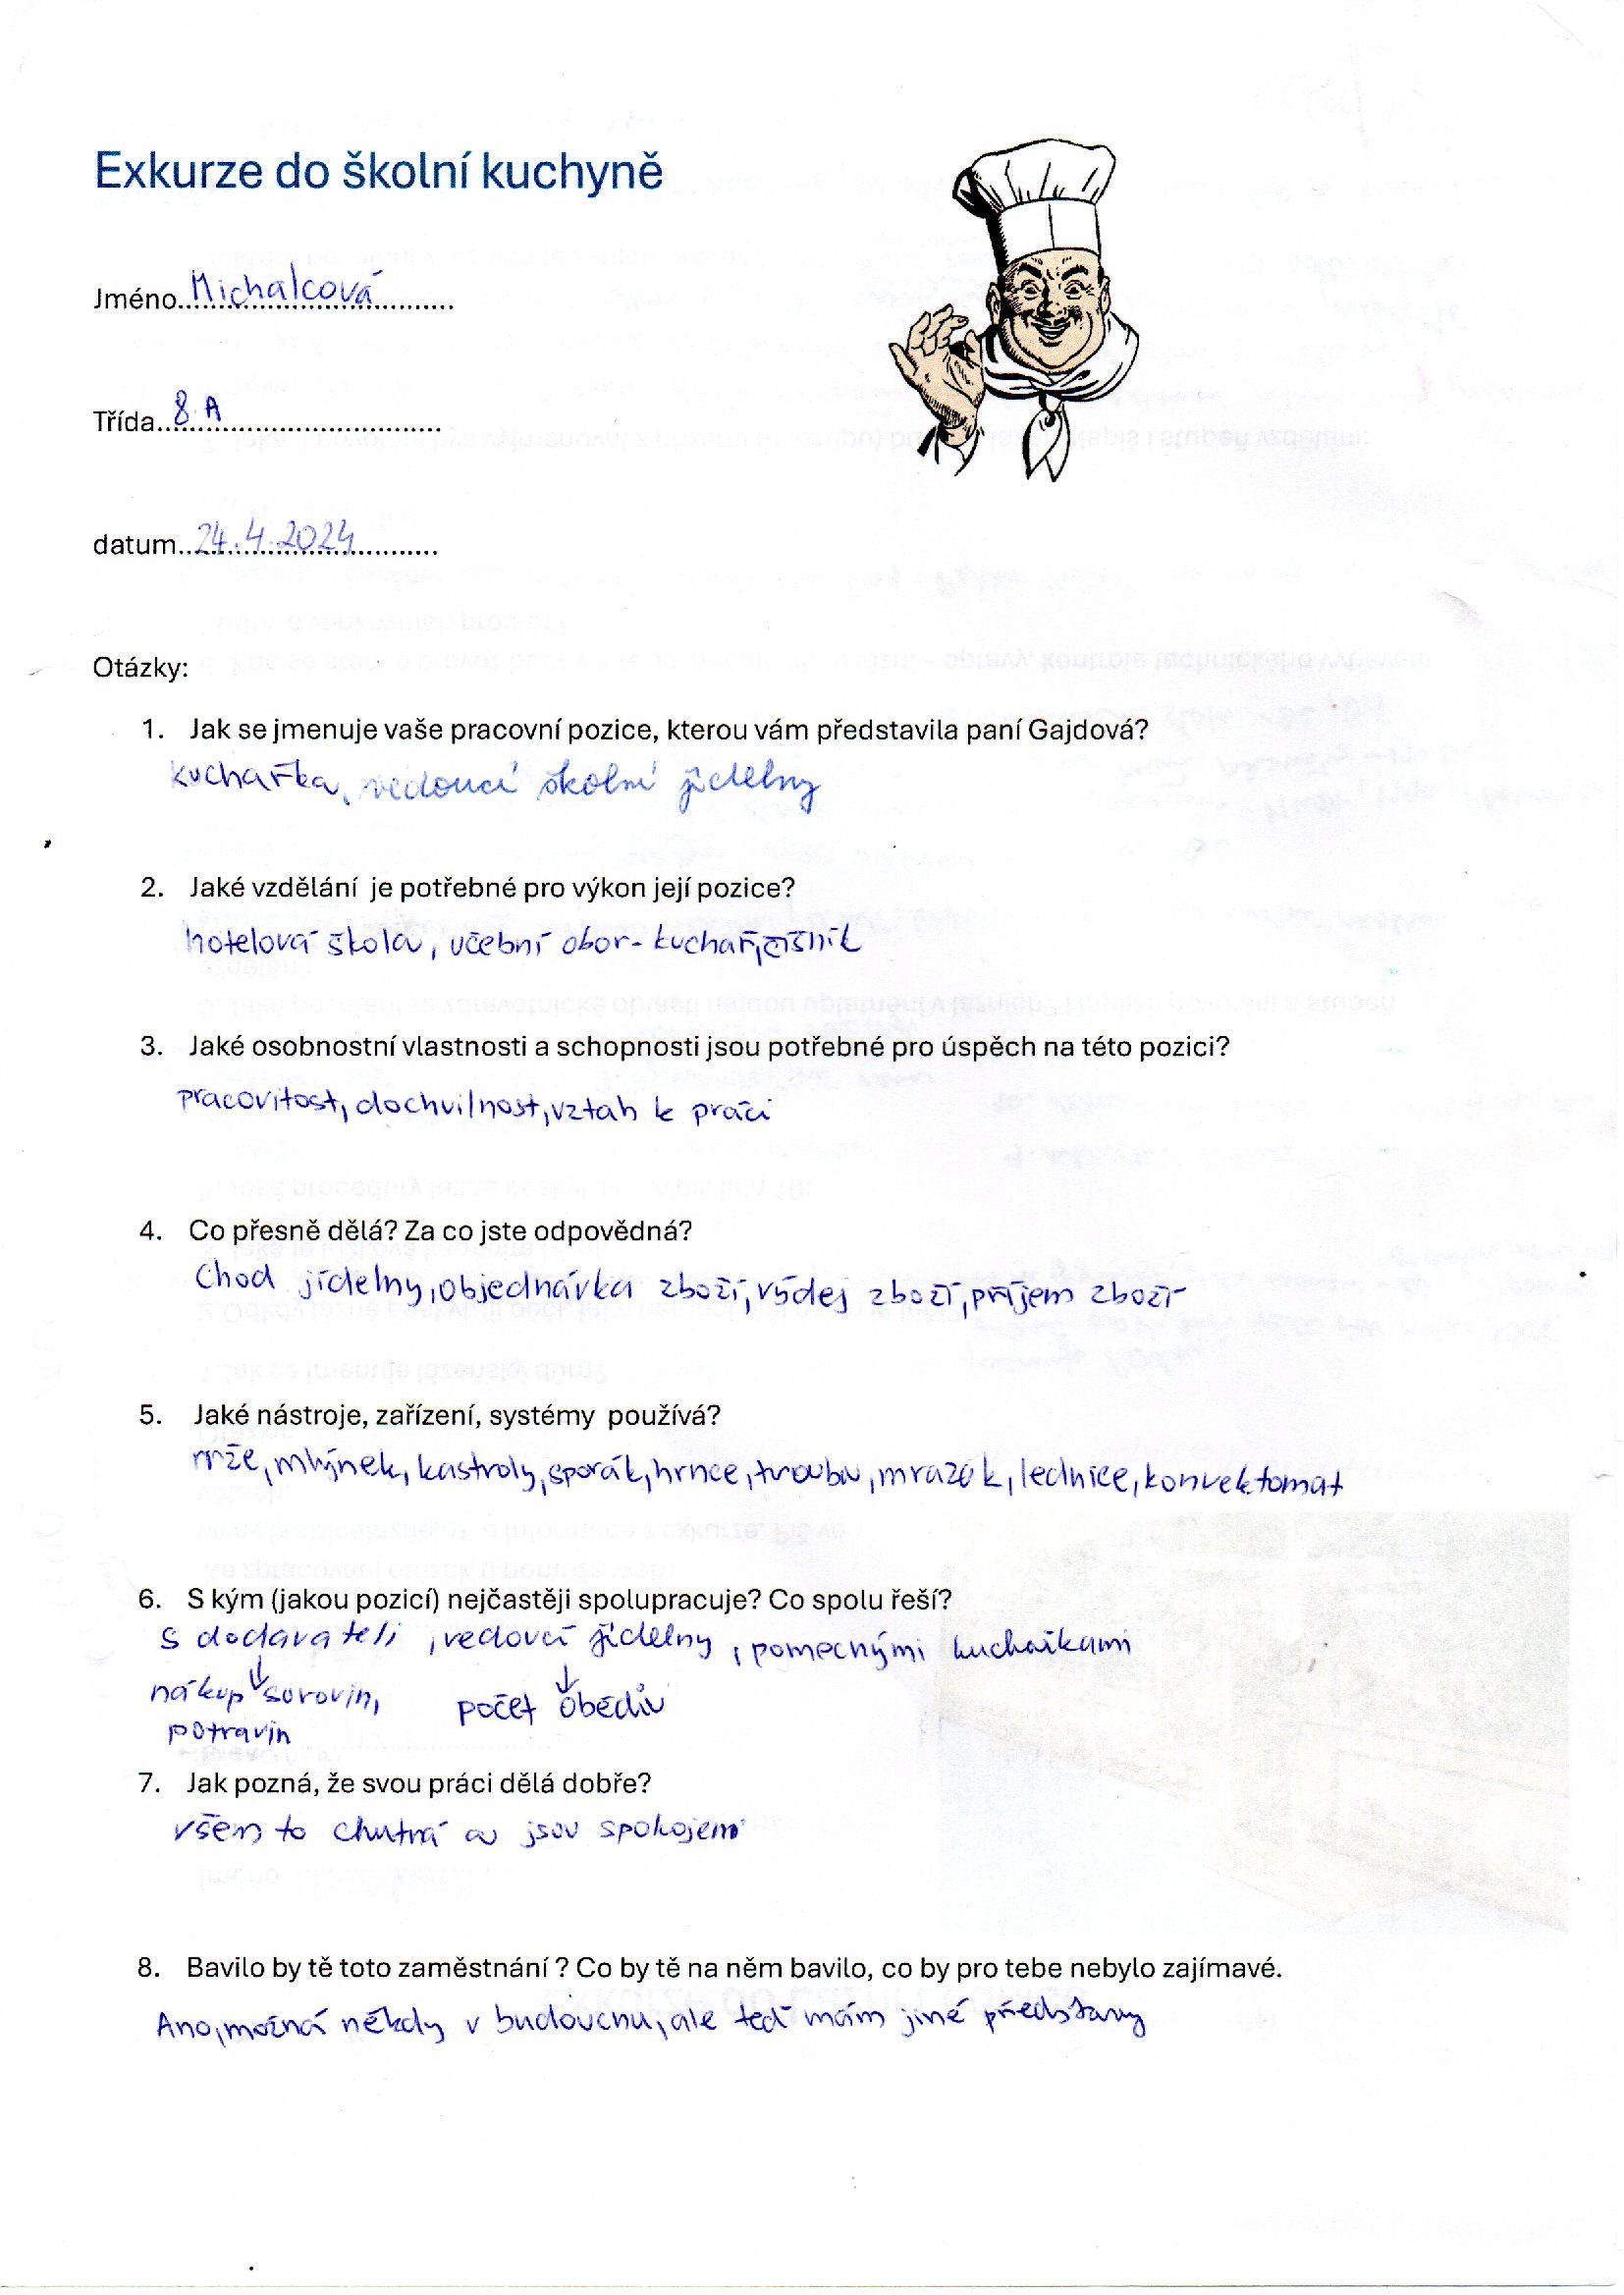 Exkurze do školní kuchyně
Jméno..Michalcová
Třída..8.A
datum..24.4.2024
Otázky:
1. Jak se jmenuje vaše pracovní pozice, kterou vám představila paní Gajdová?
kuchařka, vedoucí školní jídelny
2. Jaké vzdělání je potřebné pro výkon její pozice?
hotelová škola, učební obor - kuchař, číšník
3. Jaké osobnostní vlastnosti a schopnosti jsou potřebné pro úspěch na této pozici?
pracovitost, dochvilnost, vztah k práci
4. Co přesně dělá? Za co jste odpovědná?
Chod jídelny, objednávka zboží, výdej zboží, příjem zboží
5. Jaké nástroje, zařízení, systémy používá?
mlýnek, kastroly, sporák, hrnce, trouba, mrazák, lednice, konvektomat
6. S kým (jakou pozicí) nejčastěji spolupracuje? Co spolu řeší?
S dodavateli, vedoucí jídelny, pomocnými kuchařkami
nákup surovin, počet obědů
potravin
7. Jak pozná, že svou práci dělá dobře?
všem to chutná a jsou spokojení
8. Bavilo by tě toto zaměstnání ? Co by tě na něm bavilo, co by pro tebe nebylo zajímavé.
Ano, možná někdy v budoucnu, ale teď mám jiné představy